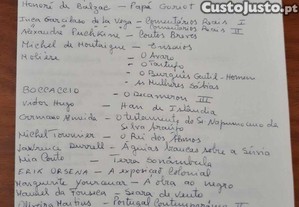 CustoJusto
Honoré de Balzac — Papá Goriot
Inca Garcilaso de la Vega — Comentários Reais I
Comentários Reais II
Alexandre Puchkine — Contos Breves
Michel de Montaigne — Ensaios
Molière — O Avaro
O Tartufo
O Burguês Gentil-Homem
As Mulheres Sábias
BOCCACCIO — O Decameron III
Victor Hugo — Han de Islândia
Germano Almeida — O testamento do Sr. Napumoceno da
Silva Araújo
Michel Tournier — O Rei dos Álamos
Lawrence Durrell — Águias brancas sobre a Sérvia
Mia Couto — Terra Sonâmbula
ERIK ORSENA — A exposição colonial
Marguerite Yourcenar — A obra ao negro
Manuel da Fonseca — Seara de Vento
Oliveira Martins — Portugal Contemporâneo